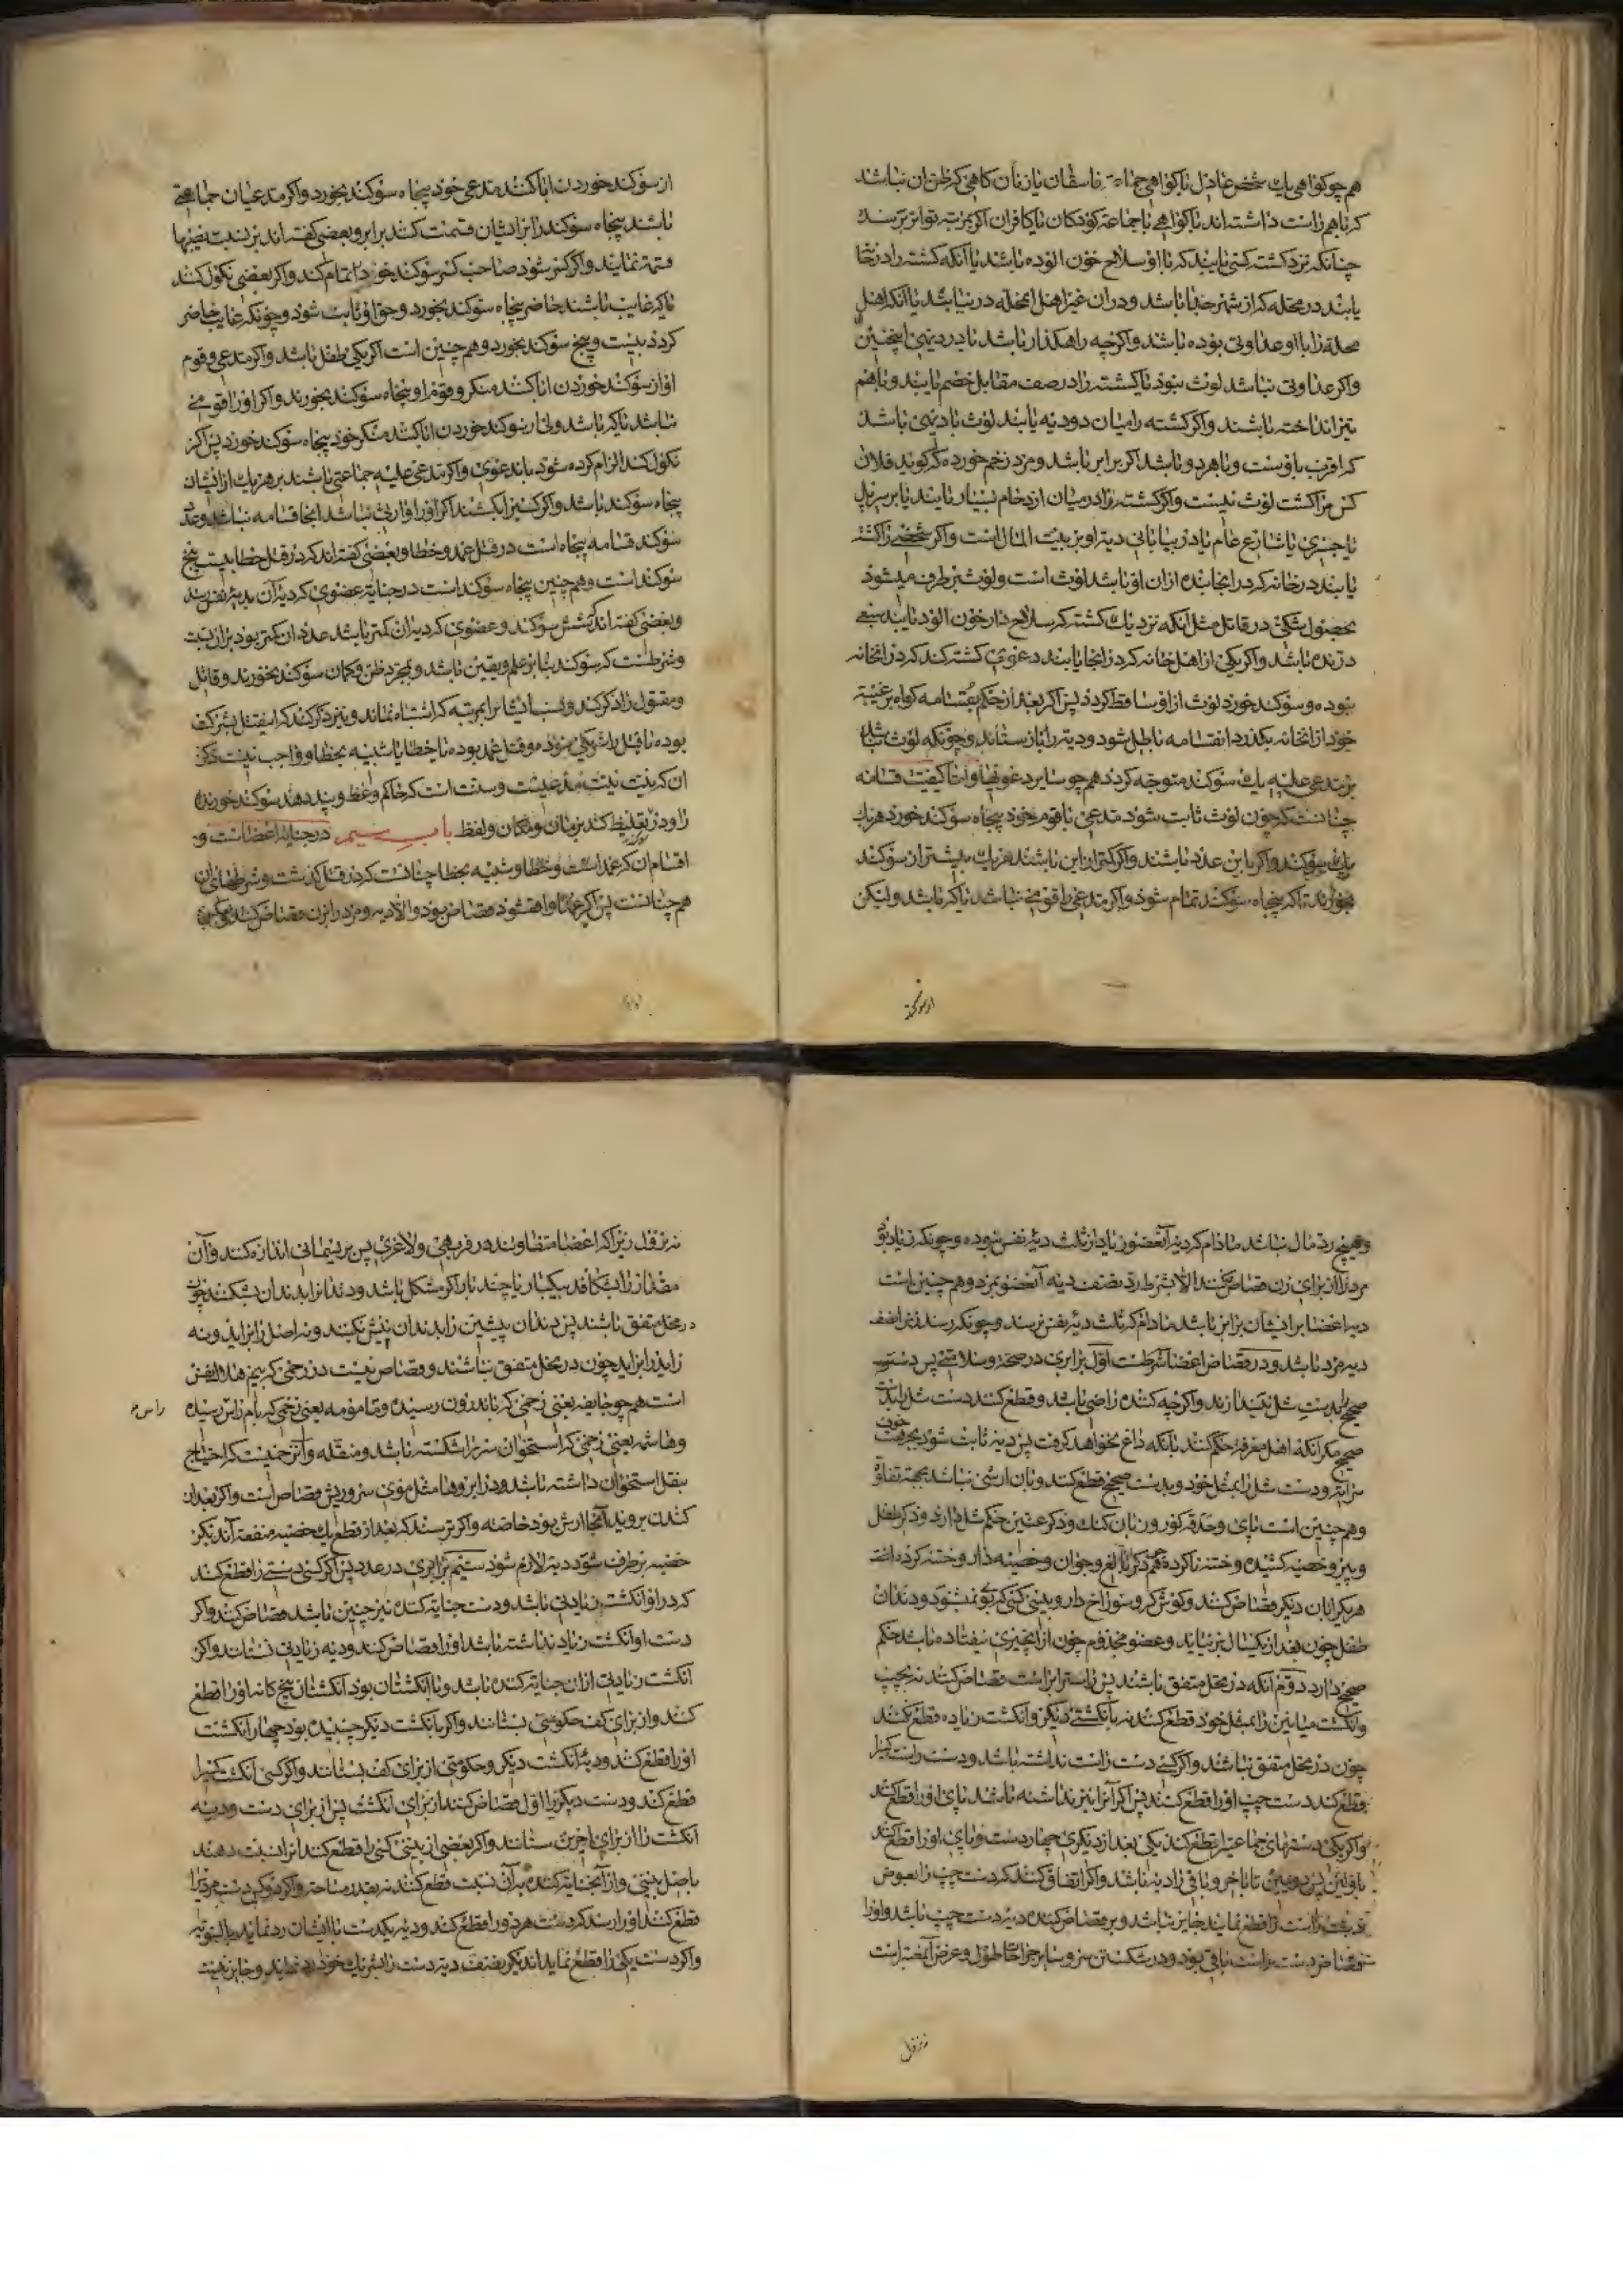 هم چو کواهی یک شخص عادل یا کواهی جماعت فاسقان یا زنان کاهی که ظن ان نباشد
که با هم راست داشته اند یا کواهی با جماعة کودکان یا کافران اکر بمرتبه تواتر برسد
چنانکه نزد کشته کسی یابند که با او سلاح خون الوده باشد یا آنکه کشته را در خانه
یابند در محله که از شهر جدا باشد و در ان غیر اهل محله در نیاشد یا آنکه اهل
محله را با او عداوتی بوده باشد واکر چه راهکذار باشد یا در دیهی اینچنین
واکر عداوتی نباشد لوث نبود یا کشته را در صف مقابل خصم یابند و با هم
تیر انداخته باشند واکر کشته را میان دو دیه یابند لوث با دیهی باشد
که اقرب باوست و با هر دو باشد اکر برابر باشد و مرد زخم خورده که کوید فلان
کس مرا کشت لوث نیست واکر کشته را در میان ازدحام بسیار یابند یا بر سر پل
یا جسری یا شارع عام یا در بیابانی دیه او بر بیت المال است واکر شخصی را کشته
یابند در خانه که در انجا بنده ازان او باشد لوث است و لوث برطرف میشود
بحصول شکی در قاتل مثل آنکه نزدیک کشته که سلاح دار خون الود یابند سبعی
درنده باشد واکر یکی از اهل خانه که در انجا یابند دعوی کشتن کند که در انخانه
نبوده و سوکند خورد لوث از او ساقط کردد پس اکر بعد از حکم بقسامه کواه بر غیبت
خود از انخانه بکذراند قسامه باطل شود و دیه را باز ستاند و چونکه لوث نباشد
بر مدعی علیه یک سوکند متوجه کردد هم چو سایر دعویها و اما کیفیت قسامه
چنانست که چون لوث ثابت شود مدعی با قوم خود پنجاه سوکند خورد هر یک
یک سوکند واکر باین عدد باشند واکر کمتر از این باشند هر یک بیشتر ان سوکند
بخورند تا که پنجاه سوکند تمام شود واکر مدعی را قومی نباشد یا که باشد ولیکن
از سوکند
از سوکند خوردن ابا کنند مدعی خود پنجاه سوکند بخورد واکر مدعیان جماعتی
باشند پنجاه سوکند را بر ایشان قسمت کنند برابر و بعضی کفته اند بر نسبت نصیبها
قسمة نمایند واکر کسر شود صاحب کسر سوکند خود را تمام کند واکر بعضی نکول کنند
یا که غایب باشند حاضر پنجاه سوکند بخورد و حق او ثابت شود و چونکه غایب حاضر
کردد بیست و پنج سوکند بخورد و هم چنین است اکر یکی طفل باشد واکر مدعی و قوم
او از سوکند خوردن ابا کنند منکر و قوم او پنجاه سوکند بخورند واکر او را قومی
نباشد یا که باشد ولی از سوکند خوردن ابا کنند منکر خود پنجاه سوکند خورد پس اکر
نکول کند الزام کرده شود باندعوی واکر مدعی علیه جماعتی باشند بر هر یک از ایشان
پنجاه سوکند باشد واکر کسی را بکشند اکر او را وارثی نباشد انجا قسامه نباشد و عدد
سوکند قسامه پنجاه است در قتل عمد و خطا و بعضی کفته اند که در قتل خطا بیست پنج
سوکند است و هم چنین پنجاه سوکند است در جنایة عضوی که دیه آن بدیه نفس رسد
و بعضی کفته اند که شش سوکند و عضوی که دیه ان کمتر باشد عدد ان کمتر بود بران نسبت
و شرطست که سوکند بنا بر علم و یقین باشد و بمجرد ظن و کمان سوکند نخورند و قاتل
و مقتول را ذکر کند و نسب ایشانرا بمرتبه که اشتباه نماند و نیز ذکر کند که این قتل بشرکت
بوده یا قاتل را شریکی نبوده و قتل عمد بوده یا خطا یا شبیه بخطا و واجب نیست ذکر
ان که نیت نیت مدعیست و سنت است که حاکم وعظ و پند دهد سوکند خورنده
را و درو تغلیظ کند بزمان و مکان و لفظ باب سیم در جنایة اعضاست و
اقسام ان که عمد است و خطا و شبیه بخطا چنانست که در قتل کذشت و شرطهای ان
هم چنانست پس اکر عمدا واقع شود قصاص بود والا دیه و مرد را بزن قصاص کنند
و هیچ رد مال نباشد مادام که دیه آنعضو زیاد از ثلث دیه نفس نبوده و چونکه زیاد بود
مرد را از برای زن قصاص نکنند الا بشرط رد نصف دیه آنعضو بمرد و هم چنین است
دیه اعضا برایشان برابر باشد مادام که بثلث دیه نفس نرسد و چونکه رسد زنرا نصف
دیه مرد باشد و در قصاص اعضا شرطست اول برابری در صحة و سلامتی پس دست
صحیح را بدست شل نیندازند واکر چه کننده راضی باشد و قطع کنند دست شل را بدست
صحیح مکر آنکه اهل معرفة حکم کنند بانکه داغ نخواهد کرفت پس دیه ثابت شود بجهت خوف
سرایة و دست شل را بمثل خود و بدست صحیح قطع کنند و بان ارشی نباشد بجهة تفاوة
و هم چنین است پای و حدقه کور و زبان کنک و ذکر عنین حکم شل دارد و ذکر طفل
و پیر و خصیه کشیده و ختنه ناکرده هم چو ذکر بالغ و جوان و خصیه دار و ختنه کرده است
هر یک را بان دیکر قصاص کنند و کوش کر و سوراخ دار و بینی کسی که بو نمشنود و دندان
طفل چون بعد از یکسال برنیاید و عضو مجذوم چون از او چیزی نیفتاده باشد حکم
صحیح دارد دوم آنکه در محل متفق باشند پس راسترا براست قصاص کنند نه بچپ
وانکشت میانین را بمثل خود قطع کنند نه بانکشتی دیکر وانکشت زیاده قطع نکنند
چون در محل متفق نباشند واکر کسی دست راست نداشته باشد و دست راست کسیرا
قطع کند دست چپ او را قطع کنند پس اکر آنرا نیز نداشته باشد پای او را قطع کنند
واکر یکی دستهای جماعتیرا قطع کند یکی بعد از دیکری چهار دست و پای او را قطع کنند
باولین پس دومین تا باخر و باقی را دیه باشد واکر اتفاق کنند که دست چپ را بعوض
دست راست قطع نمایند جایز نباشد و بر قصاص کننده دیه دست چپ باشد و او را
قصاص دست راست باقی بود و در شکستن سر و سایر جراحتها طول و عرض آن معتبر است
نه نزول
نه نزول زیرا که اعضا متفاوتند در فربهی و لاغری پس بریسمانی اندازه کنند و آن
مقدار را بشکافد بیکبار یا چند بار اکر مشکل باشد و دندانرا بدندان بشکنند چون
در محل متفق باشند پس دندان پیشین را بدندان نیش نکنند و نه اصل را بزاید و نه
زاید را بزاید چون در محل متفق نباشند و قصاص نیست در زخمی که بیم هلاک نفس
است هم چو جایفه یعنی زخمی که باندرون رسیده و مامومه یعنی زخمی که بام راس رسیده
راس ه
و هاشمه یعنی زخمی که استخوان سر را شکسته باشد و منقله و آن زخمیست که احتیاج
بنقل استخوان داشته باشد و در ابروها مثل موی سر و ریش قصاص است واکر بعد ان
کندن بروید آنجا ارش بود خاصه واکر ترسند که بعد از قطع یک خصیه منفعة آندیکر
خصیه برطرف شود دیه لازم شود سیم برابری در عدد پس اکر کسی دستی را قطع کند
که در او انکشت زیادتی باشد و دست جنایة کننده نیز چنین باشد قصاص کنند واکر
دست او انکشت زیاد نداشته باشد او را قصاص کنند و دیه زیادتی بستانند واکر
انکشت زیادتی ازان جنایة کننده باشد و با انکشتان بود انکشتان پنج کانه او را قطع
کنند و از برای کف حکومتی بستانند واکر بانکشت دیکر چسبیده بود چهار انکشت
او را قطع کنند و دیه انکشت دیکر و حکومتی از برای کف بستانند واکر کسی انکشت کسیرا
قطع کند و دست دیکریرا اول قصاص کنند از برای انکشت پس از برای دست و دیه
انکشت را از برای آخرین ستانند واکر بعضی از بینی کسی را قطع کند انرا نسبت دهند
باصل بینی و از آن جنایة کننده بدان نسبت قطع کنند نه بقدر مساحة واکر دو کس دست مردیرا
قطع کنند او را رسد که دست هر دو را قطع کند و دیه یکدست باایشان رد نماید بالسویه
واکر دست یکی را قطع نماید اندیکر نصف دیه دست را بشریک خود رد نماید و جایز نیست